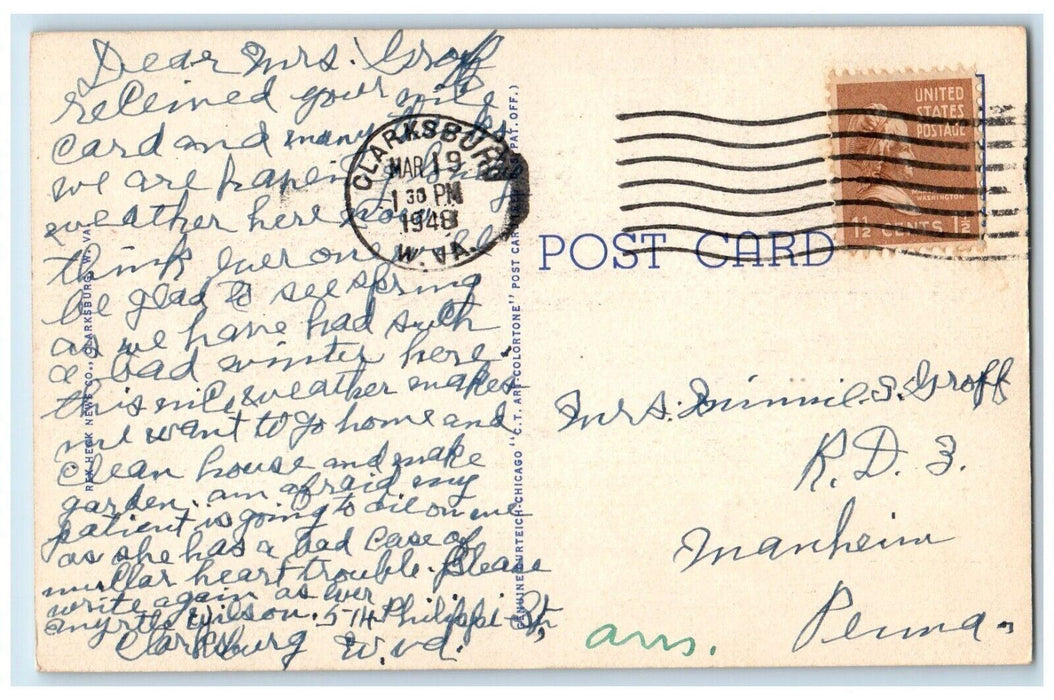 Dear Mrs. Groff
received your nice
card and many
we are haveing
weather here now. I
think ever one
be glad to see spring
as we have had such
a bad winter here.
this nice weather makes
me want to go home and
clean house and make
garden. am afraid my
patient is going to die on me
as she has a bad case of
heart trouble. Please
write again as ever
Myrtle Wilson. 514 Philippi St,
Clarksburg W. Va.
REX HECK NEWS CO., CLARKSBURG, W. VA.
CLARKSBURG
MAR 19
1 30 PM
1948
W. VA.
GENUINE CURTEICH-CHICAGO "C.T. ART-COLORTONE" POST CARD PAT. OFF.)
UNITED
STATES
POSTAGE
WASHINGTON
1½ CENTS 1½
POST CARD
Mrs. Minnie S. Groff
R. D. 3.
Manheim
Penna.
ans.